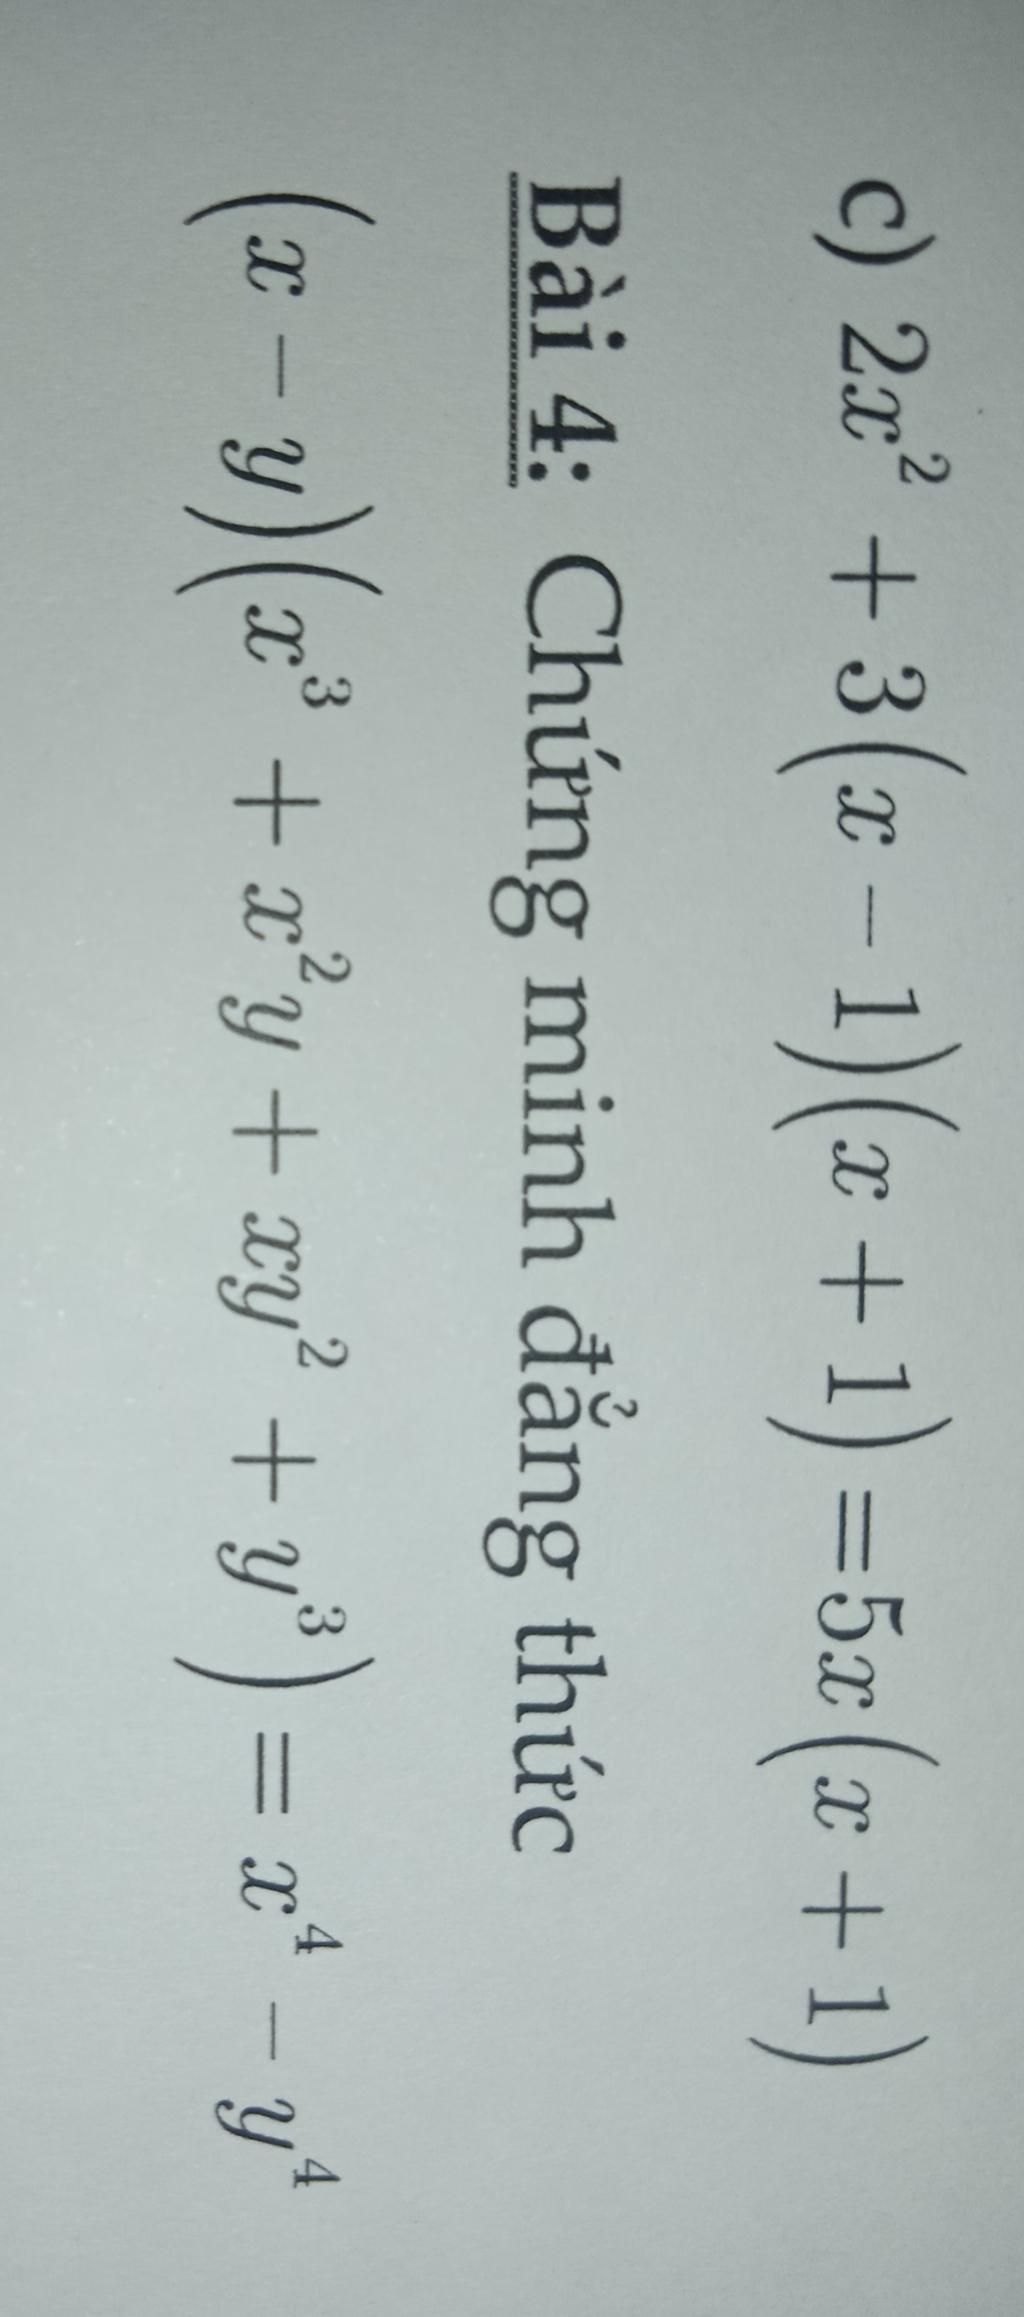 c) 2x² + 3(x − 1)(x + 1) = 5x(x + 1)
Bài 4: Chứng minh đẳng thức
(x − y)(x³ + x²y + xy² + y³) = x⁴ − y⁴